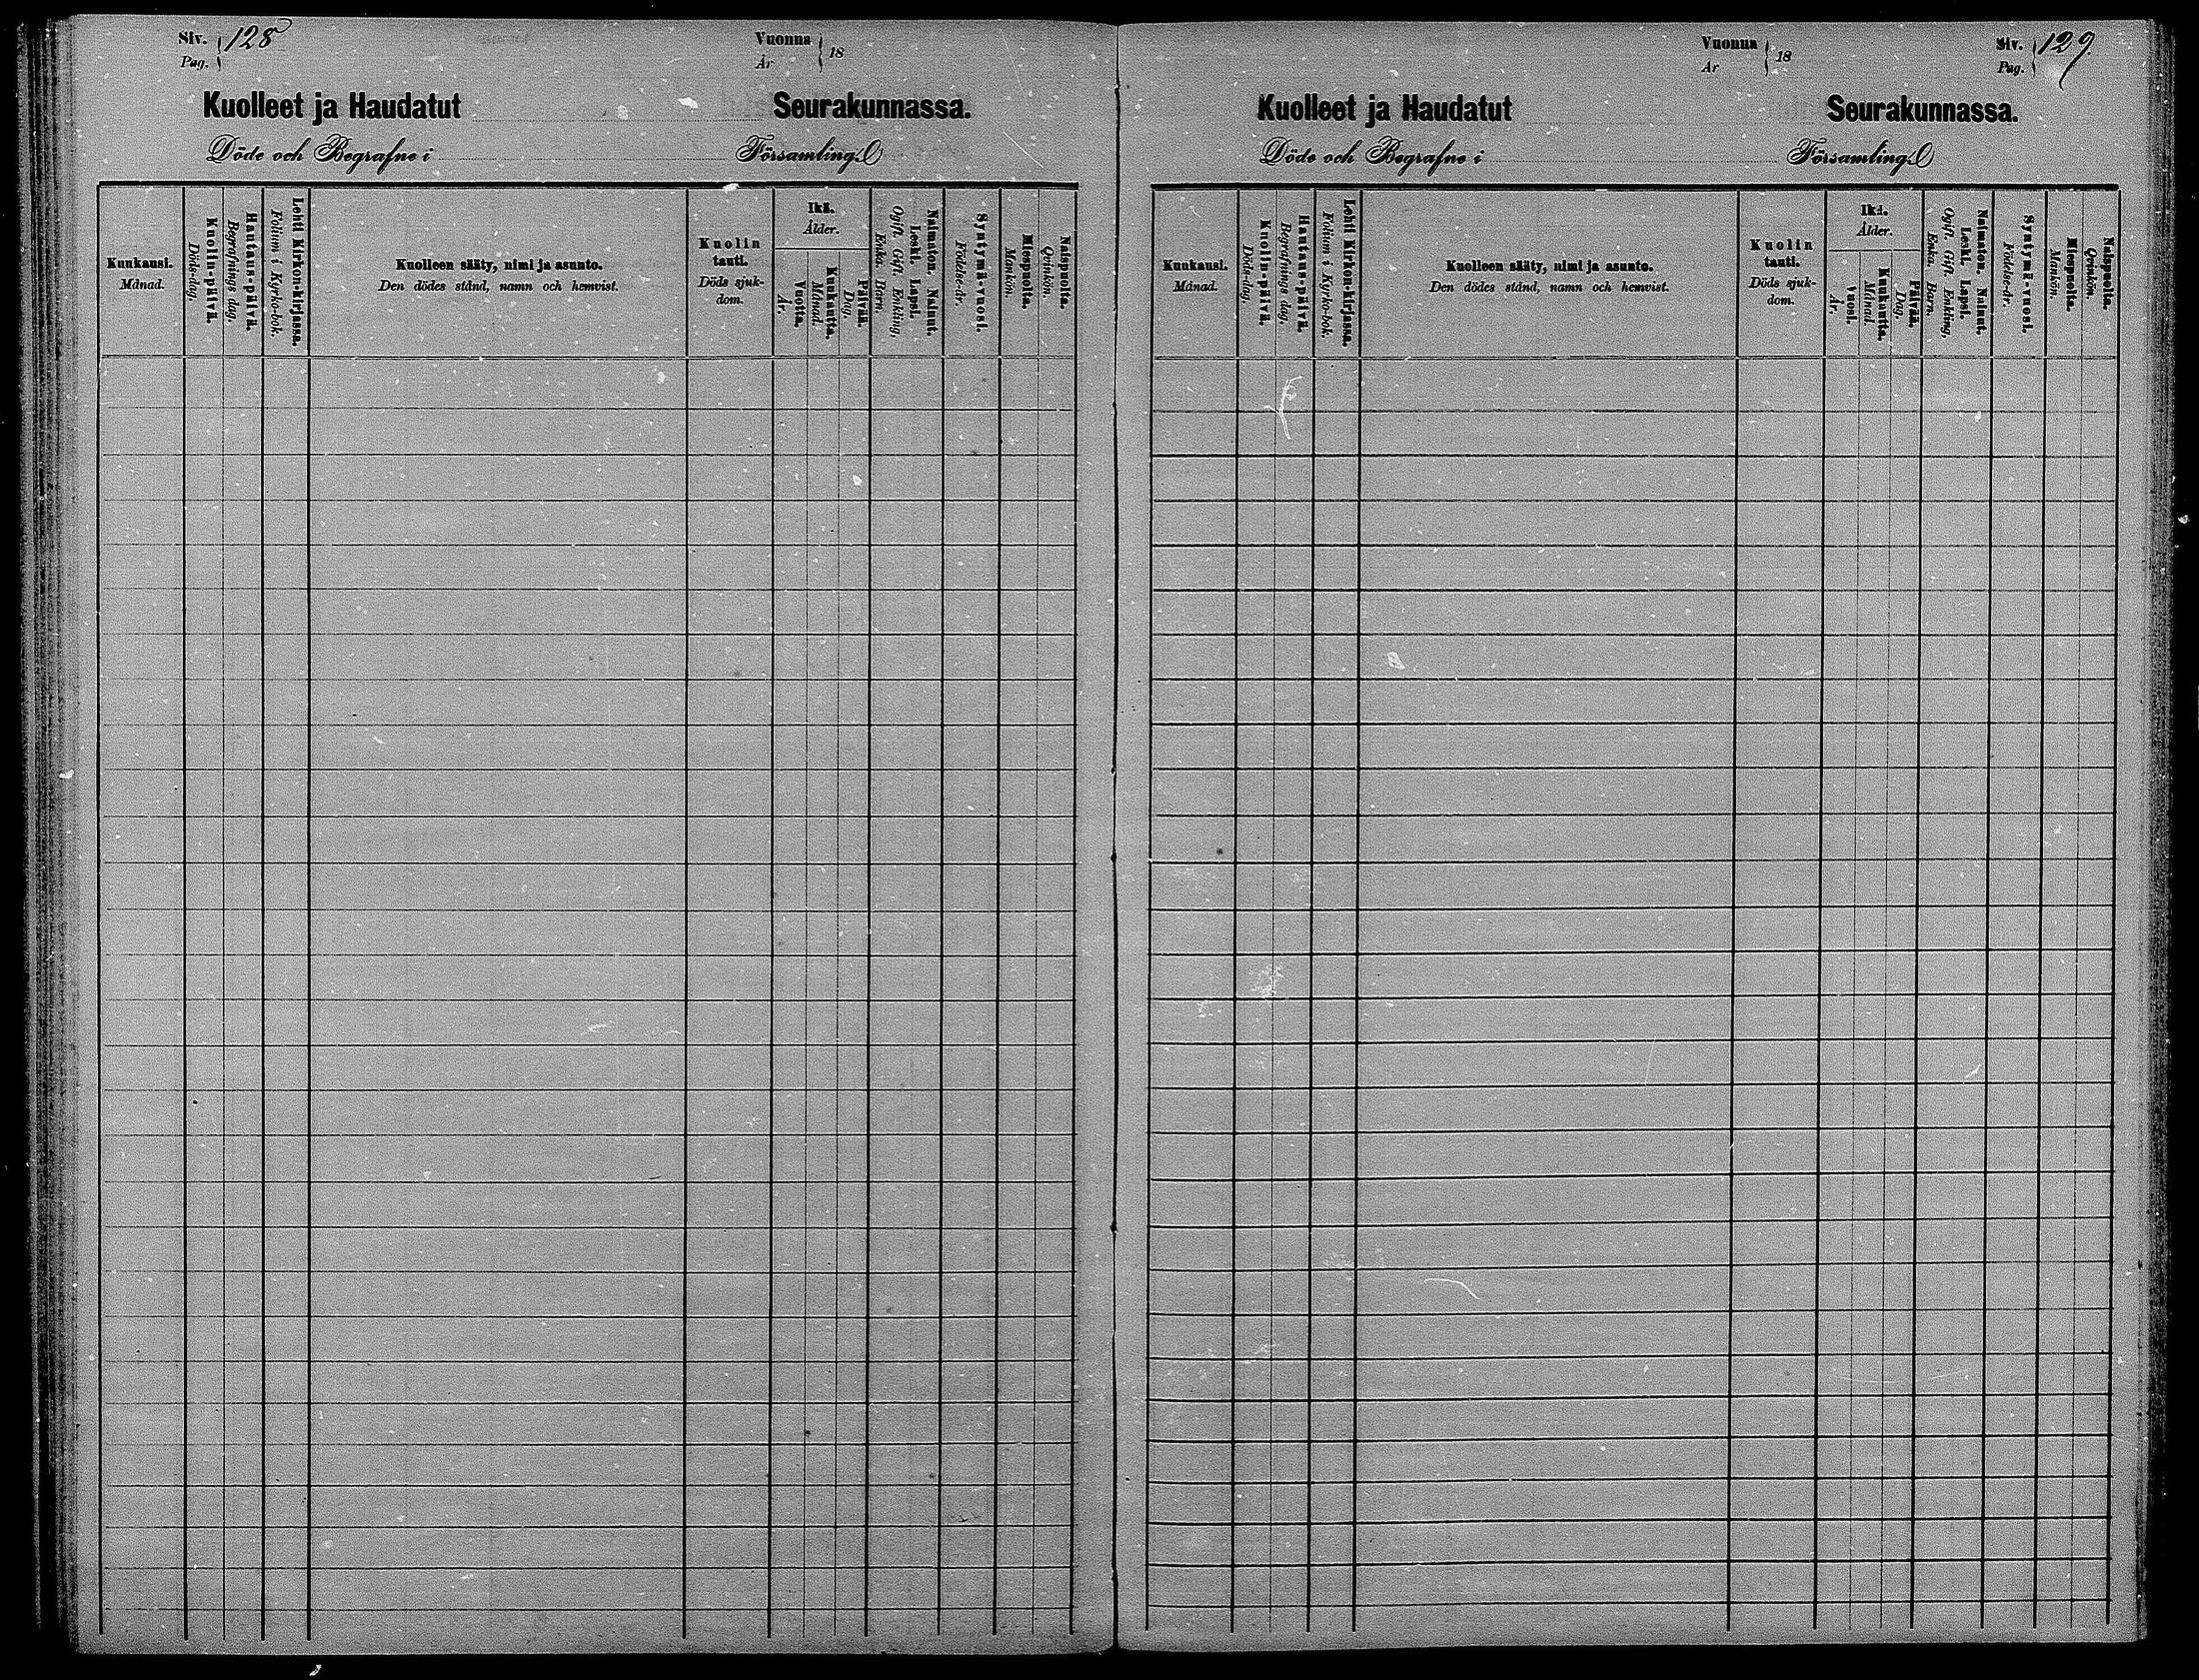 Siv. 128
Pag.
Vuonna
År
18
Kuolleet ja Haudatut Seurakunnassa.
Döde och Begrafne i Församling.
Kuukausi.
Månad.
Kuolin-päivä.
Döds-dag.
Hautaus-päivä.
Begrafnings dag.
Lehti Kirkon-kirjassa.
Folium i Kyrko-bok.
Kuolleen sääty, nimi ja asunto.
Den dödes stånd, namn och hemvist.
Kuolin
tauti.
Döds sjuk-
dom.
Ikä.
Ålder.
Vuotta.
År.
Kuukautta.
Månad.
Päivää.
Dag.
Naimaton. Nainut.
Leski. Lapsi.
Ogift. Gift. Enkling,
Enka. Barn.
Syntymä-vuosi.
Födelse-år.
Miespuolta.
Mankön.
Naispuolta.
Qvinkön.
Vuonna
År
18
Siv. 129.
Pag.
Kuolleet ja Haudatut Seurakunnassa.
Döde och Begrafne i Församling.
Kuukausi.
Månad.
Kuolin-päivä.
Döds-dag.
Hautaus-päivä.
Begrafnings dag.
Lehti Kirkon-kirjassa.
Folium i Kyrko-bok.
Kuolleen sääty, nimi ja asunto.
Den dödes stånd, namn och hemvist.
Kuolin
tauti.
Döds sjuk-
dom.
Ikä.
Ålder.
Vuosi.
År.
Kuukautta.
Månad.
Päivää.
Dag.
Naimaton. Nainut.
Leski. Lapsi.
Ogift. Gift. Enkling,
Enka. Barn.
Syntymä-vuosi.
Födelse-år.
Miespuolta.
Mankön.
Naispuolta.
Qvinkön.